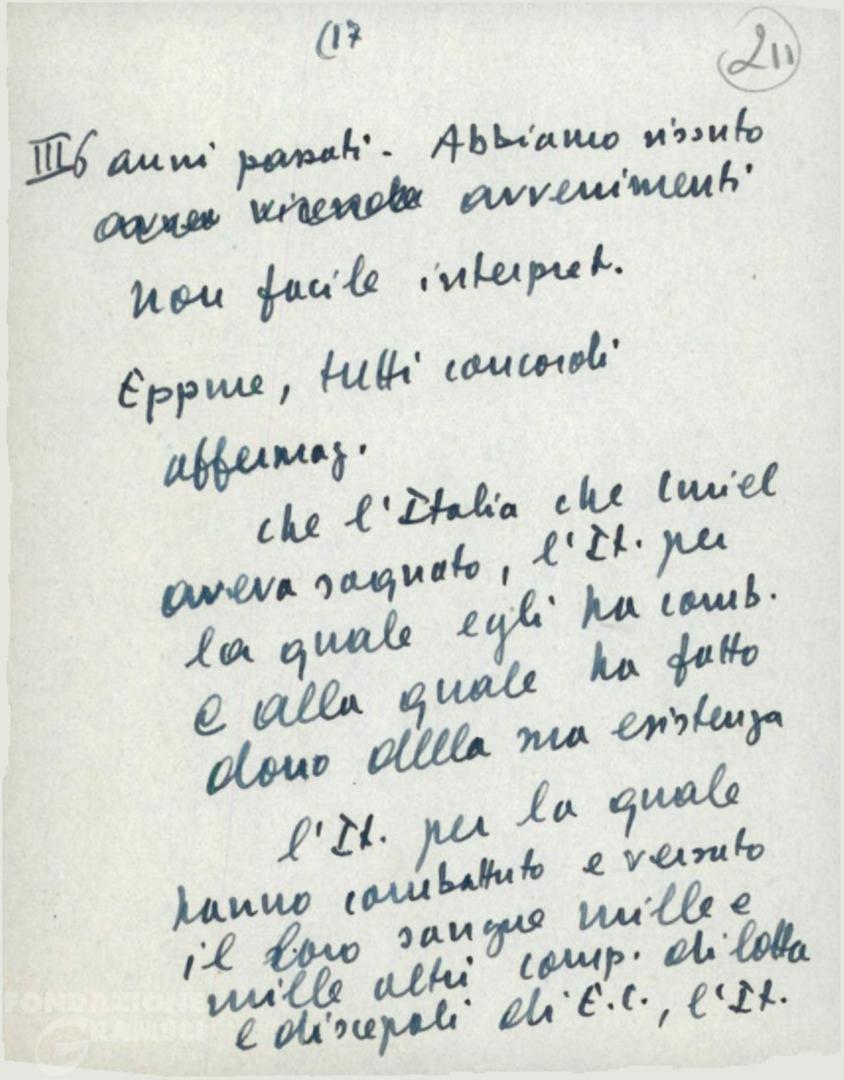 (17
211
III 6 anni passati. Abbiamo vissuto
vicende avvenimenti
non facile interpret.
Eppure, tutti concordi
affermaz.
che l'Italia che Curiel
aveva sognato, l'It. per
la quale egli ha comb.
e alla quale ha fatto
dono della sua esistenza
l'It. per la quale
hanno combattuto e versato
il loro sangue mille e
mille altri comp. di lotta
e discepoli di E.C., l'It.
FONDAZIONE
GRAMSCI